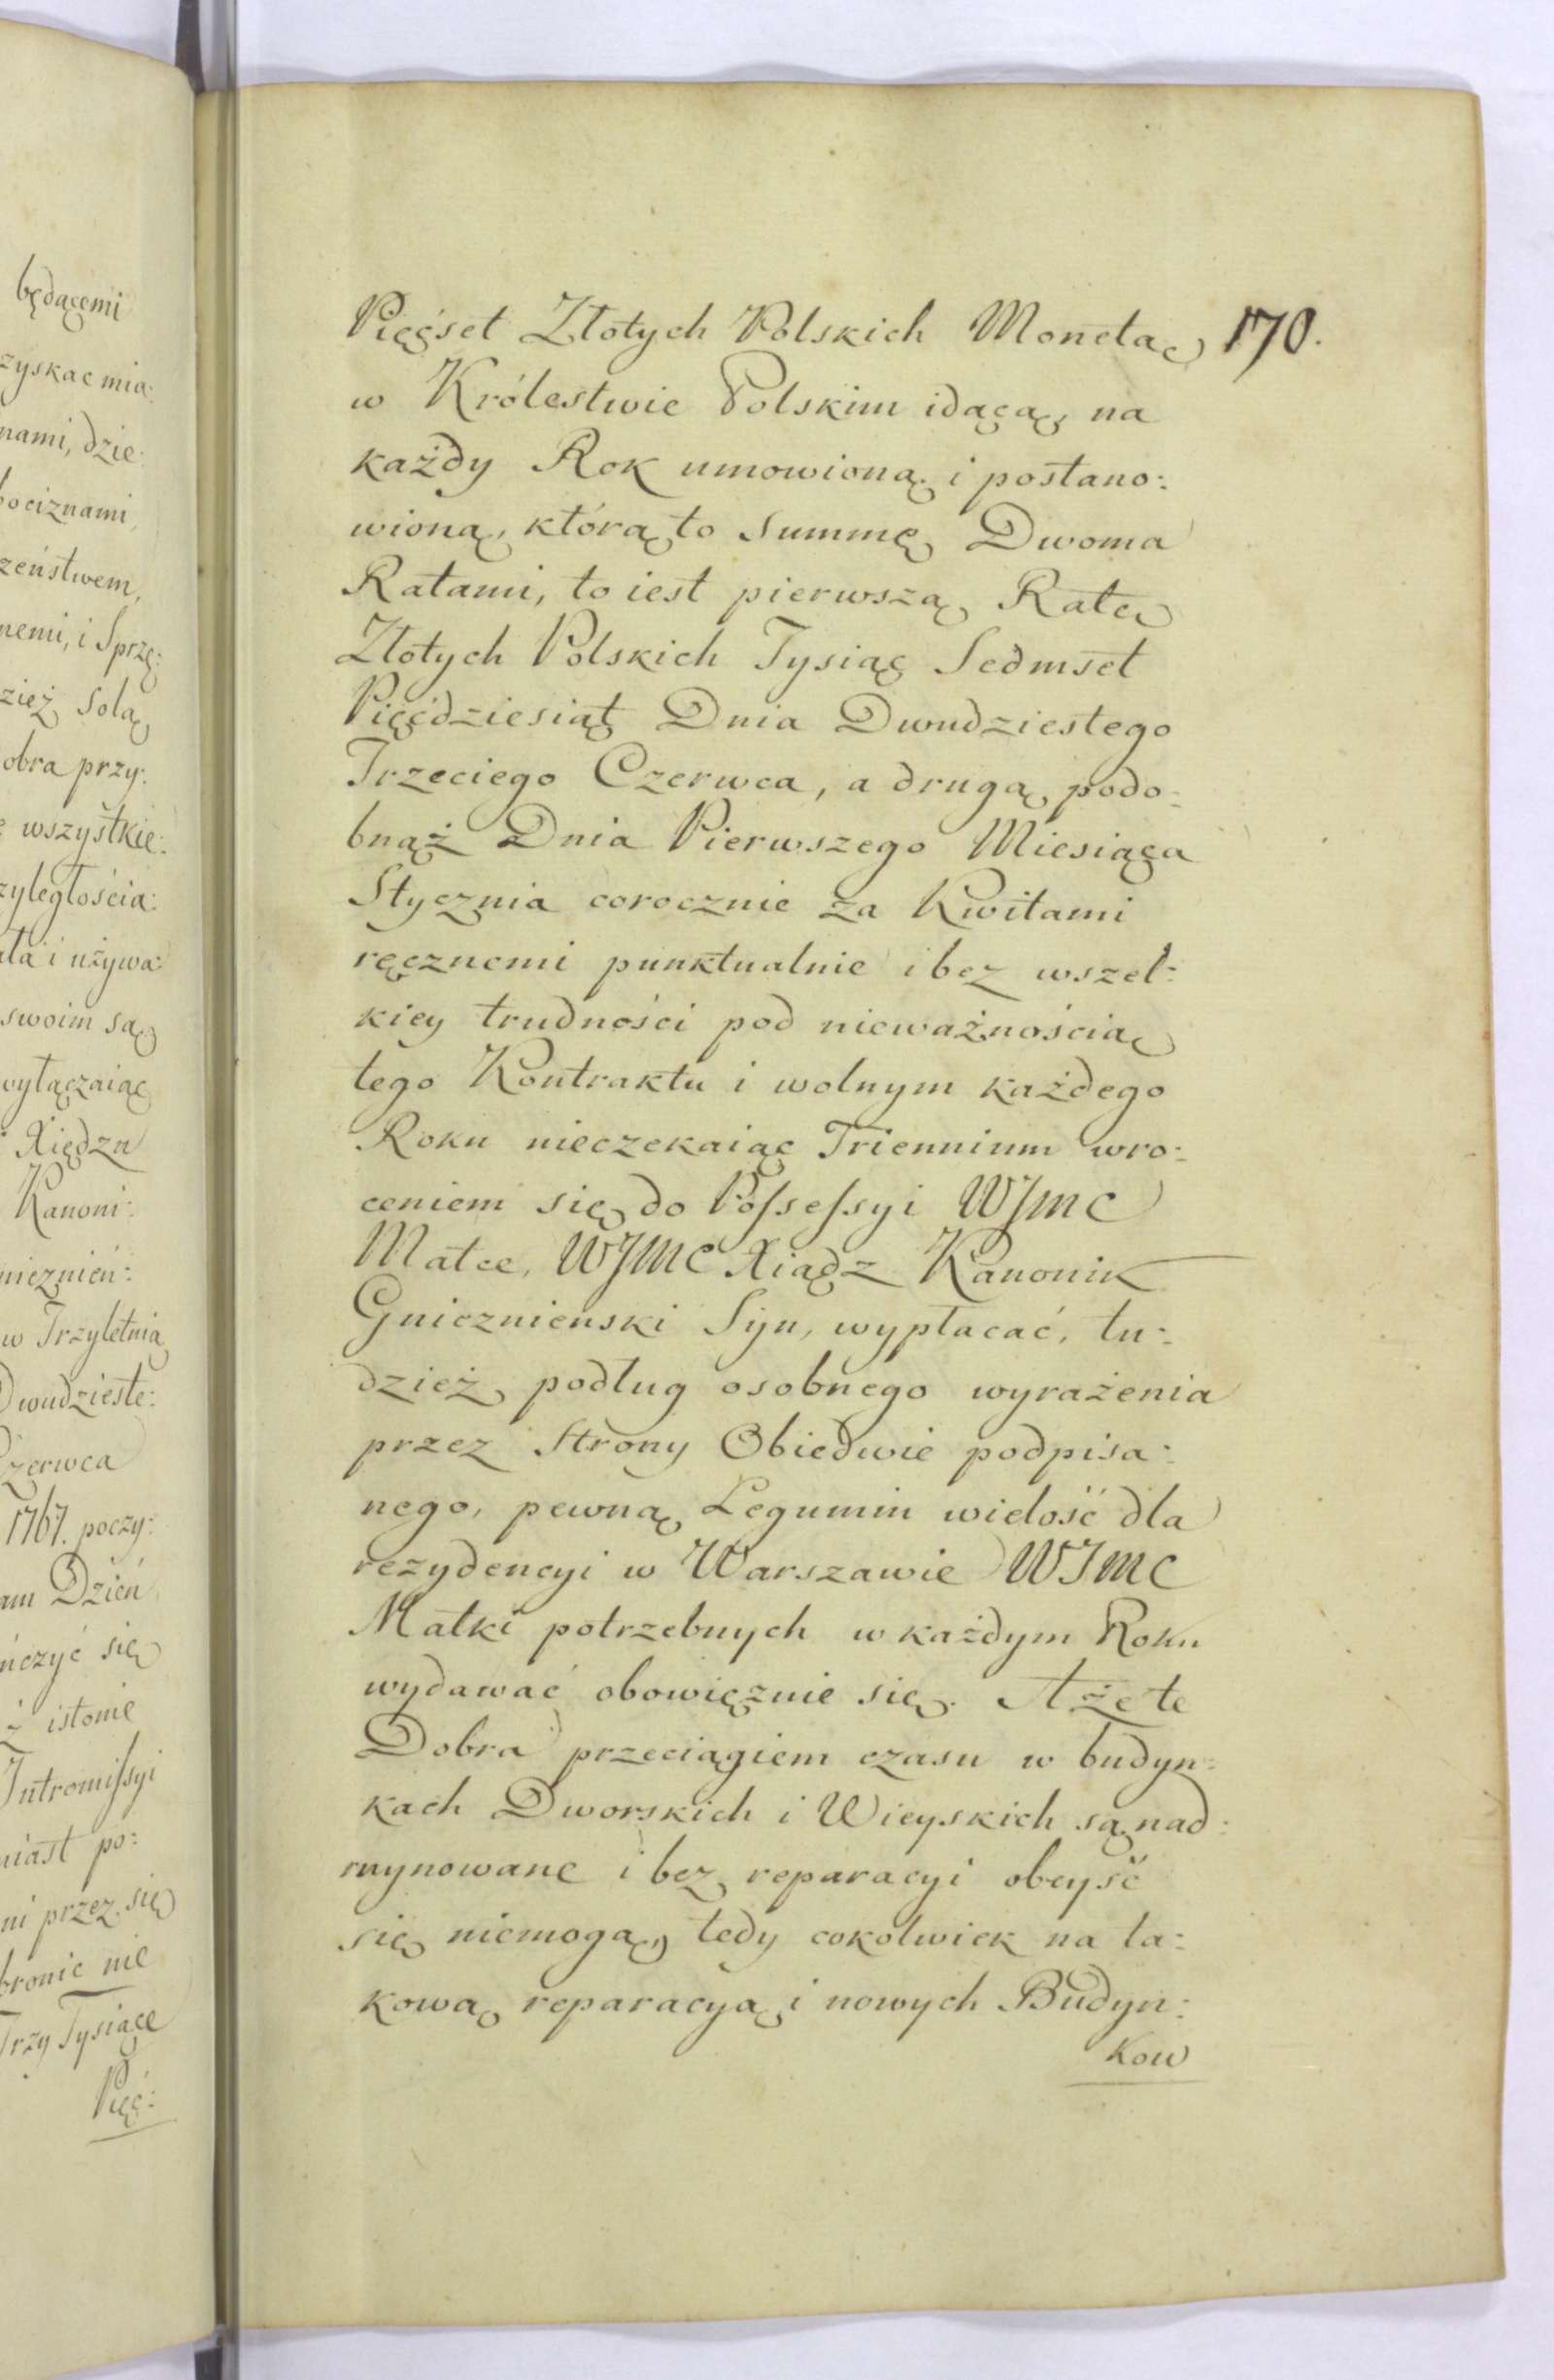 będącemi
zyskac mia:
nami, dzie:
bociznami,
zeństwem,
nemi, i Sprzę:
zież Solą
obra przy:
wszystkie:
zyległościa:
ała i używa:
swoim są
wyłączaiąc
Xiędzu
Kanoni:
nieznień:
w Trzyletnią
Dwudzieste:
Czerwca
1767. poczy:
am Dzień
ńczyć się
ż istonie
Intromissyi
miast po:
ni przez się
bronic nie
Trzy Tysiące
Pięć:
170.
Pięćset Złotych Polskich Monetą
w Królestwie Polskim idącą, na
każdy Rok umowioną i postano:
wioną, którą to Summę Dwoma
Ratami, to iest pierwszą Ratę
Złotych Polskich Tysiąc Sedmset
Pięćdziesiąt Dnia Dwudziestego
Trzeciego Czerwca, a drugą podo:
bnąż Dnia Pierwszego Miesiąca
Stycznia corocznie za Kwitami
ręcznemi punktualnie i bez wszel:
kiey trudności pod nieważnością
tego Kontraktu i wolnym każdego
Roku nieczekaiąc Triennium wro:
ceniem się do Possessyi WJMC
Matce, WJMC Xiądz Kanonik
Gnieznienski Syn, wypłacać, tu:
dzież podług osobnego wyrażenia
przez Strony Obiedwie podpisa:
nego, pewną Legumin wielość dla
rezydencyi w Warszawie WJMC
Matki potrzebnych w każdym Roku
wydawać obowięznie się. A że te
Dobra przeciągiem czasu w budyn:
kach Dworskich i Wieyskich są nad:
ruynowane i bez reparacyi obeyść
się niemogą, tedy cokolwiek na ta:
kową reparacyą i nowych Budyn:
kow